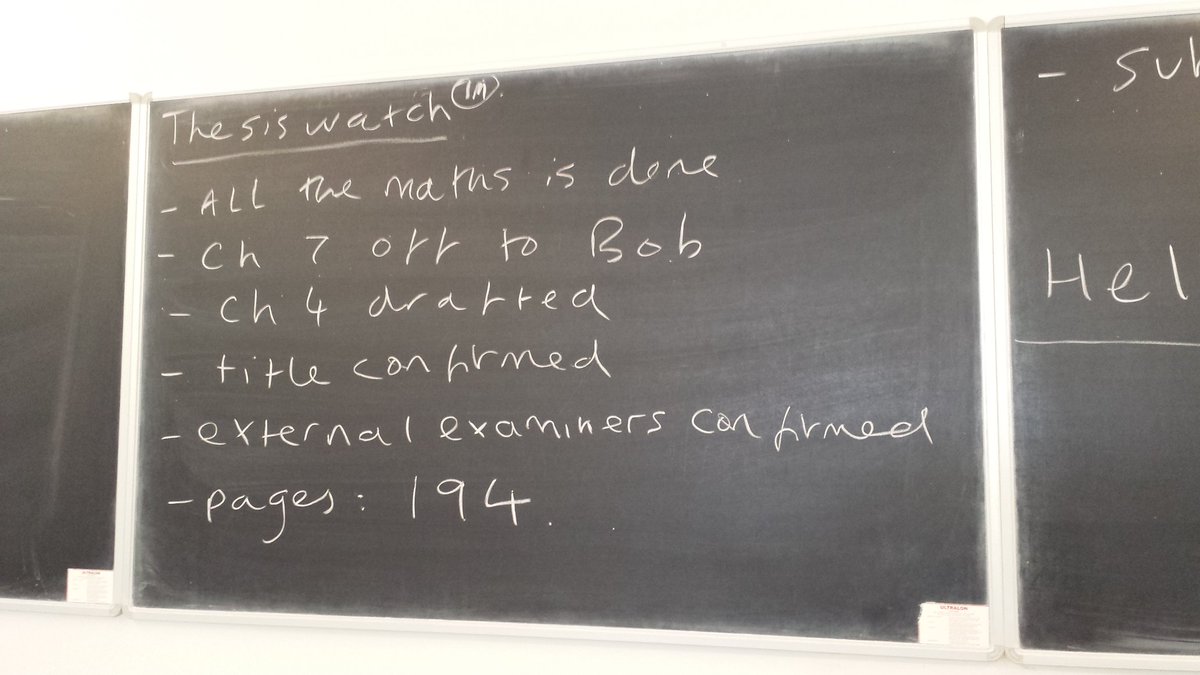 Thesis watch TM
- ALL the maths is done
- Ch 7 off to Bob
- Ch 4 drafted
- title confirmed
- external examiners confirmed
- pages: 194.
ULTRALON
ULTRALON